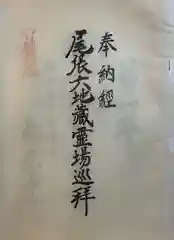 奉納經
尾張六地藏霊場巡拜